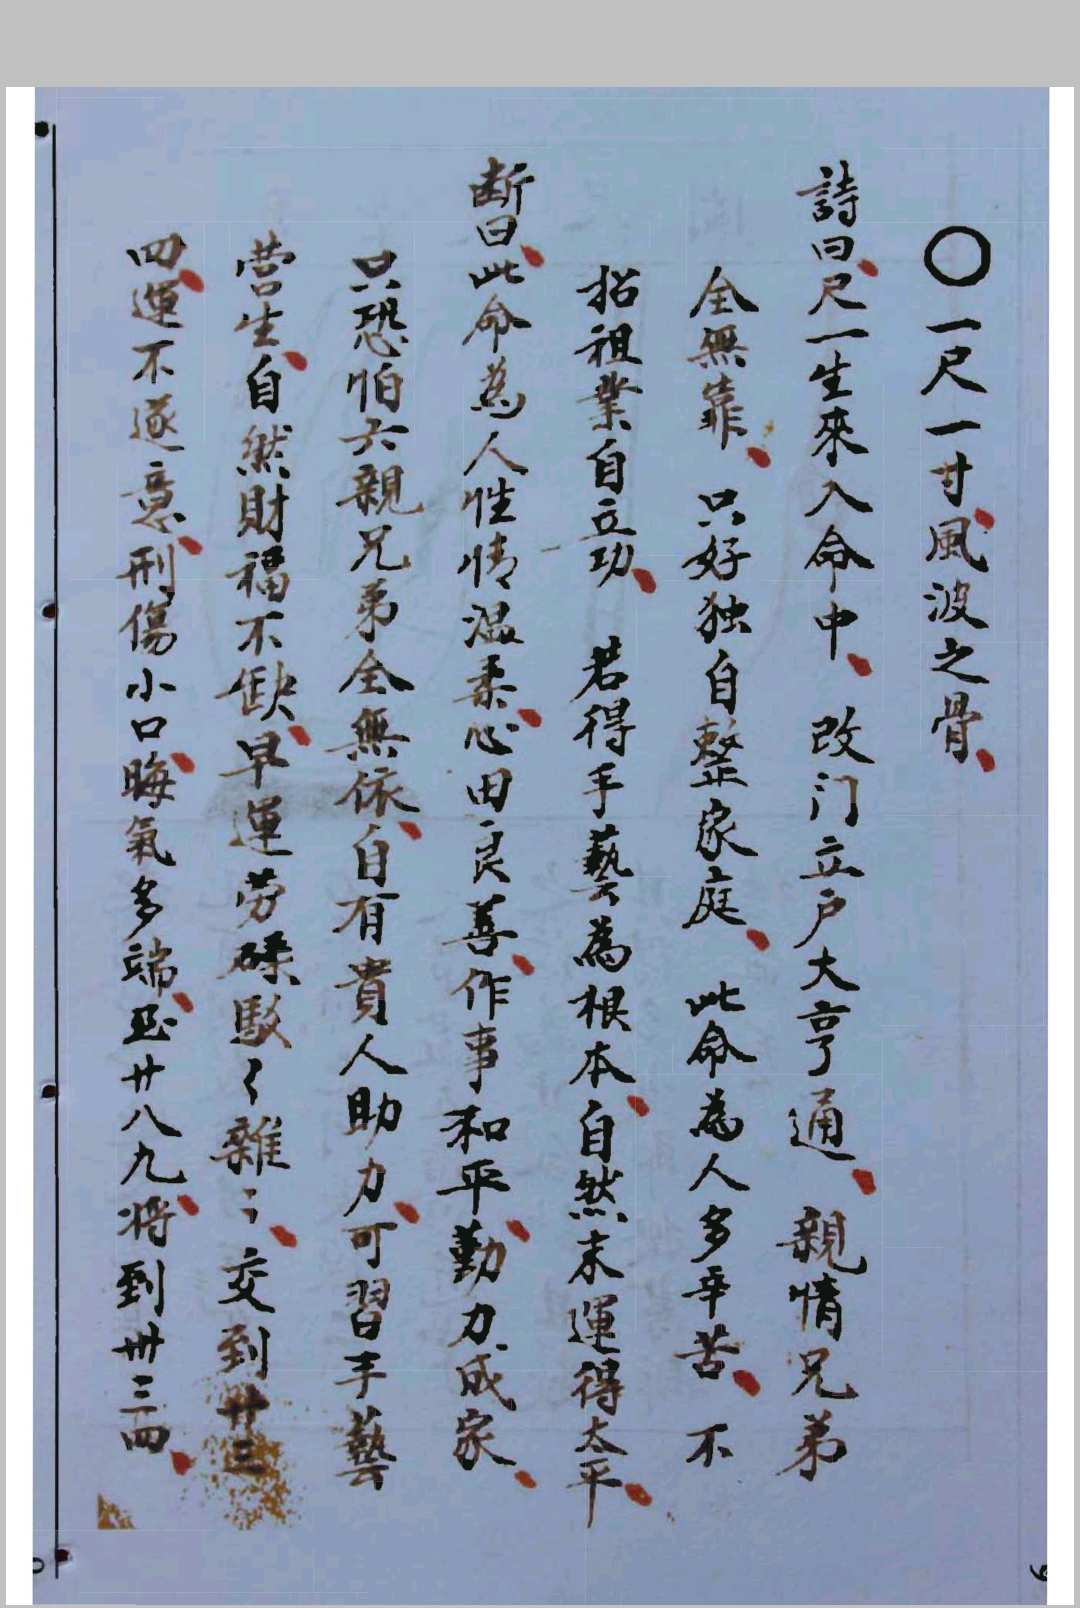 〇一尺一寸風波之骨
詩曰尺一生來入命中 改门立户大亨通 親情兄弟
全無靠 只好独自整家庭 此命為人多辛苦 不
招祖業自立功 若得手藝為根本自然末運得太平
断曰此命為人性情温柔心田良善作事和平勤力成家
只恐怕六親兄弟全無依自有貴人助力可習手藝
营生自然財福不缺早運劳碌駁々雜々交到廿三
四運不遂意刑傷小口晦氣多端至廿八九將到卅三四